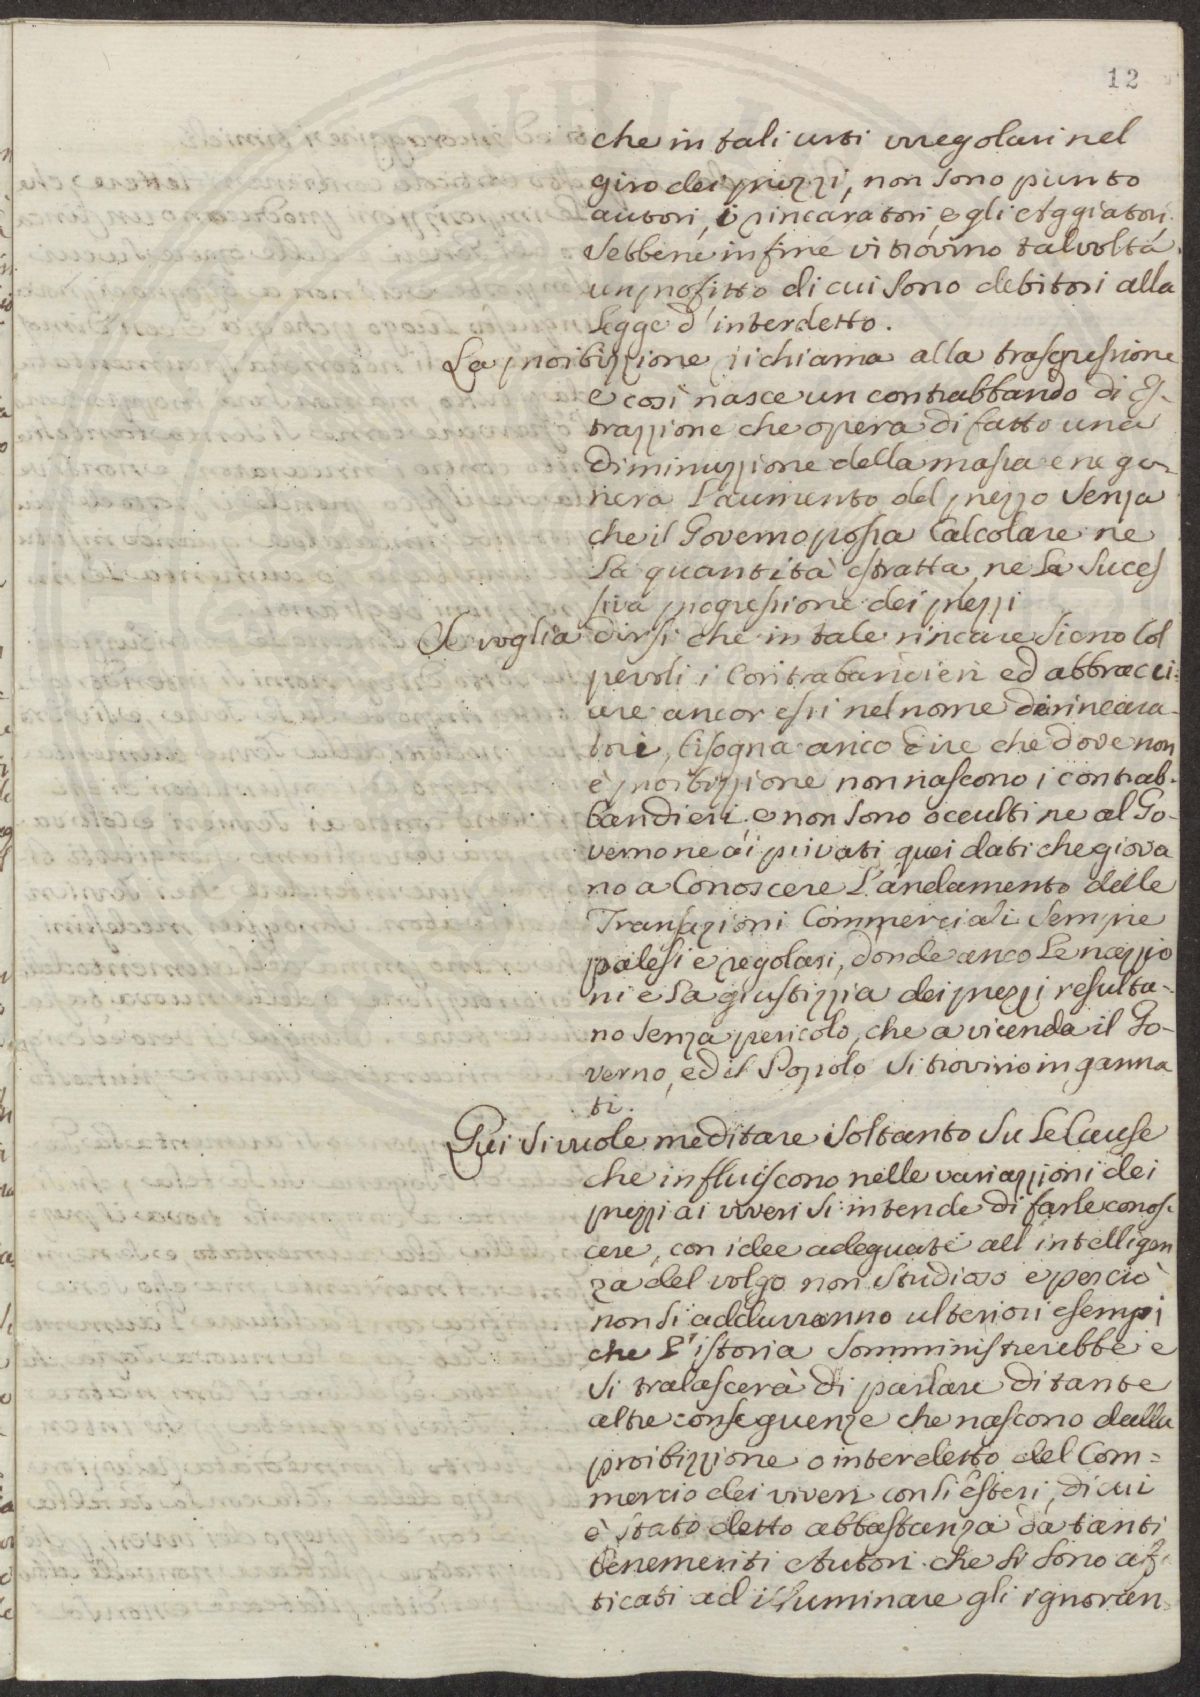 12
che in tali urti irregolari nel
giro dei prezzi, non sono punto
autori, i rincaratori, e gli Aggiatori.
Sebbene in fine vi trovino talvolta
un profitto di cui sono debitori alla
Legge d'interdetto.
La proibizzione richiama alla trasgressione
e così nasce un contrabbando di es-
trazzione che opera di fatto una
diminuzzione della massa e ne ge-
nera l'aumento del prezzo senza
che il Governo possa Calcolare ne
la quantità estratta, ne la Suces
siva progressione dei prezzi
Se voglia dirsi che in tale rincare sieno Col
pevoli i Contrabandieri ed abbracci-
are ancor essi nel nome di rincara-
tori, bisogna anco dire che dove non
è proibizzione non nascono i contrab-
bandieri e non sono occulti ne al Go-
verno ne ai privati quei dati che giova
no a Conoscere l'andamento delle
Transazioni Commerciali sempre
palesi e regolari, donde anco le nazzio
ni e la giustizzia dei prezzi resulta-
no senza pericolo, che a vicenda il Go-
verno, ed il Popolo si trovino inganna
ti.
Qui si vuole meditare soltanto su le Cause
che influiscono nelle variazzioni dei
prezzi ai viveri si intende di farle conos-
cere, con idee adeguate all intelligen
za del volgo non studioso e perciò
non si addurranno ulteriori esempi
che l'istoria somministrerebbe e
si tralascerà di parlare di tante
altre conseguenze che nascono dalla
proibizzione o interdetto del Com=
mercio dei viveri con li esteri, di cui
è stato detto abbastanza da tanti
benemeriti Autori che si sono af-
ticati ad illuminare gli ignoran-